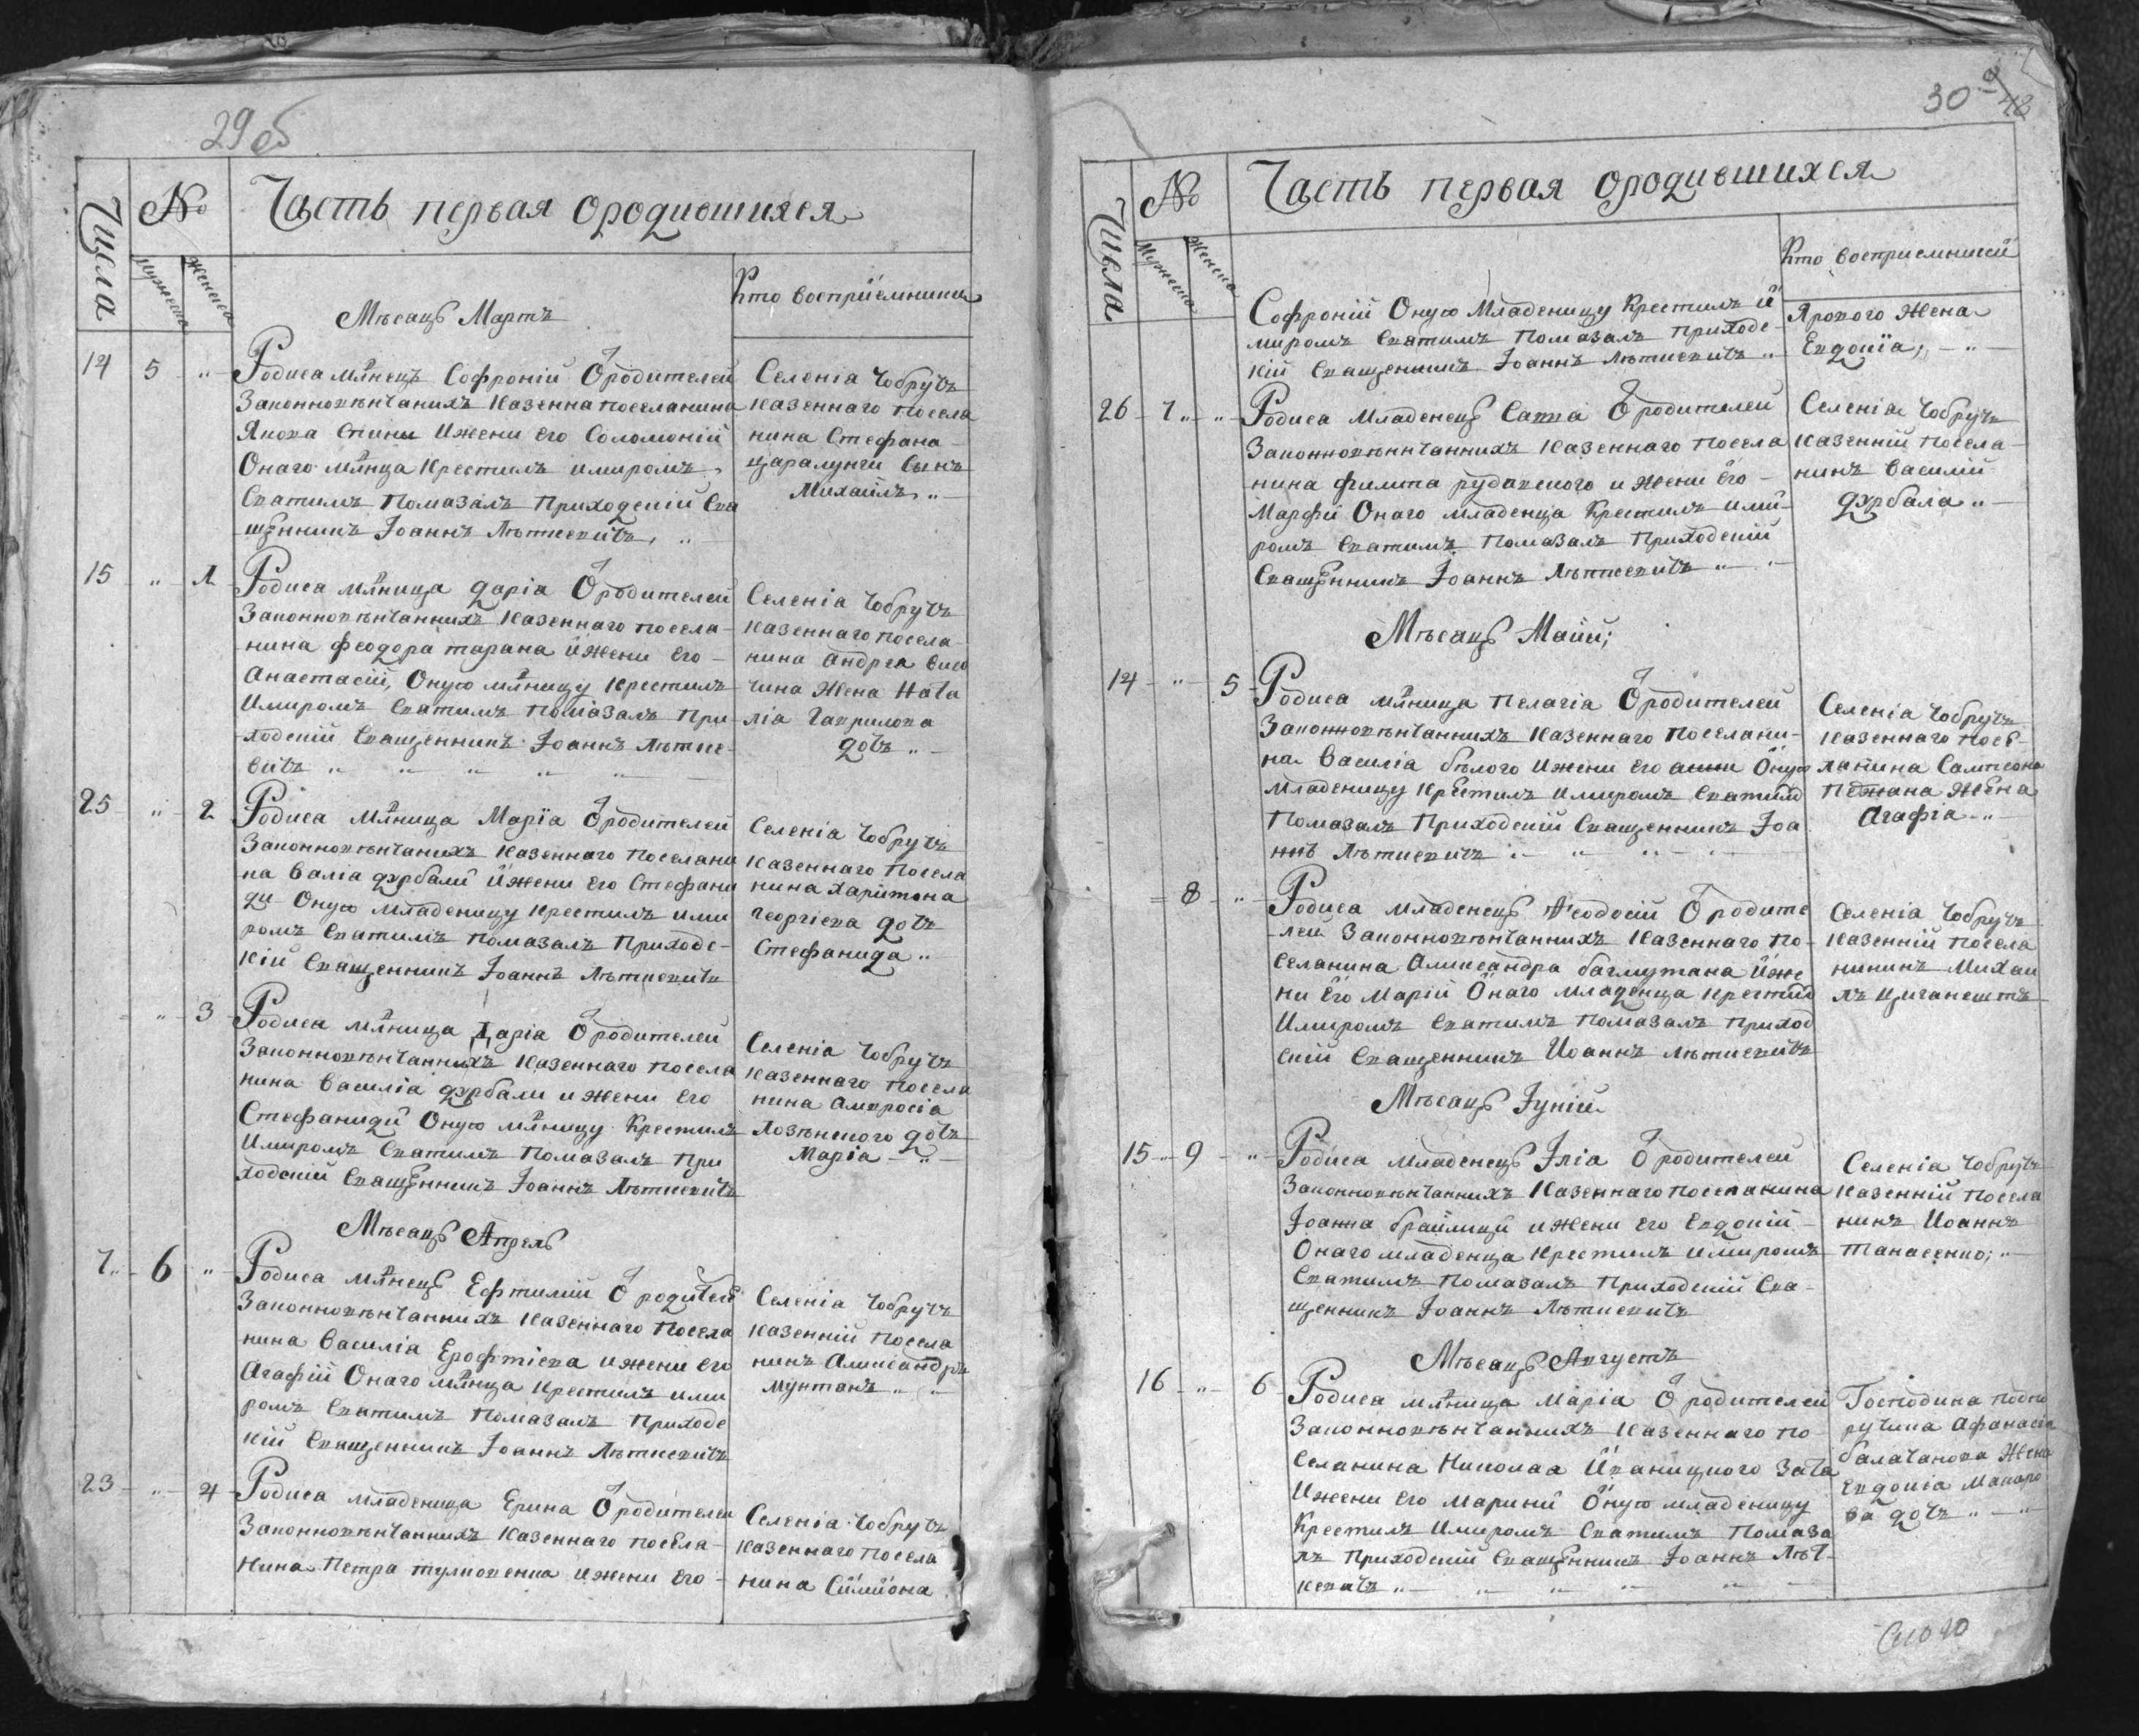 29 об
Числа
№
Часть первая ородившихся
Мужеска
Женска
Мѣсацъ Мартъ
Кто восприемники
14 5 „ Родиса млнецъ Софроній Ѿродителей
Законновѣнчанихъ казенна поселанина
Якова Спины Ижени его Соломоній
Онаго млнца крестилъ имиромъ
Сватимъ помазалъ Приходскій Сва
щенникъ Іоаннъ Лѣткевичъ, „
Селенія Чобручъ
казеннаго посела
нина Стефана
царалунги Сынъ
Михаилъ „
15 „ 1 Родиса млница дарія Ѿродителей
Законновѣнчаннихъ казеннаго посела-
нина феодора тарана Ижени его
Анастасій, Оную млницу крестилъ
Имиромъ Сватимъ помазалъ При
ходскій Сващенникъ Іоаннъ Лѣтке-
вичъ „ „ „ „ „
Селенія Чобручъ
казеннаго посела
нина андрея
чина жена Ната
лія Гаврилова
дочь „
25 „ 2 Родиса Млница Марія Ѿродителей
Законновѣнчанихъ казеннаго поселани
на Валіа дурбали Ижени его Стефани
ди Оную младеницу крестилъ ими
ромъ Сватимъ помазалъ Приходс-
кій Сващенникъ Іоаннъ Лѣткевичъ
Селенія Чобручъ
казеннаго посела
нина харитона
георгіева дочь
Стефанида „
„ 3 Родиса млница Дарія Ѿродителей
Законновѣнчаннихъ казеннаго посела
нина Василіа дурбали и жени его
Стефаниди Оную млницу Крестилъ
Имиромъ Сватимъ помазалъ При
ходскій Сващенникъ Іоаннъ Лѣткевичъ
Селенія Чобручъ
казеннаго посела
нина Амвросіа
Лозѣнского дочь
Марія „
Мѣсацъ Апрель
7 6 „ Родиса млнецъ Ефтимій Ѿродителей
Законновѣнчаннихъ казеннаго посела
нина Василіа Ерофтіева ижени его
Агафій Онаго млнца крестилъ ими
ромъ Сватимъ помазалъ Приходс
кій Сващенникъ Іоаннъ Лѣткевичъ
Селенія Чобручъ
казенній посела
нинъ Аликсандръ
Мунтанъ „
23 „ 4 Родиса младеница Ерина Ѿродителей
Законновѣнчаннихъ казеннаго посела-
нина Петра ижени его
Селенія Чобручъ
казеннаго посела
нина Симиона
30
Числа
№
Часть первая ородившихся
Мужеска
Женска
Кто восприемники
Софроній Оную Младеницу Крестилъ И
миромъ Сватимъ помазалъ приходс-
кій Сващенникъ Іоаннъ Лѣткевичъ „
Ярового Жена
Евдокіа; „
26 7 „ Родиса Младенецъ Савва Ѿродителей
Законновѣнчаннихъ казеннаго посела
нина филипа рудавского и жени его
Марфи Онаго младенца Крестилъ ими-
ромъ Сватимъ помазалъ Приходскій
Сващенникъ Іоаннъ Лѣткевичъ „
Селенія Чобручъ
казенній посела-
нинъ Василій
дурбала „
Мѣсацъ Маій;
14 „ 5 Родиса млница Пелагіа Ѿродителей
Законновѣнчаннихъ казеннаго поселани-
на Василіа бѣлого Ижени его Оную
младеницу крестилъ имиромъ Сватимъ
помазалъ Приходскій Сващенникъ Іоа
ннъ Лѣткевичъ „ „ „
Селенія Чобручъ
казеннаго посе-
ланина Сампсона
Жена
Агафіа „
8 „ Родиса младенецъ Ѳеодосій Ѿродите
лей Законновѣнчаннихъ казеннаго по-
селанина Аликсандра баглутана Иже
ни Его Марій Онаго младенца крестилъ
Имиромъ Сватимъ помазалъ Приход
скій Сващенникъ Иоаннъ Лѣткевичъ
Селенія Чобручъ
казенній посела
нининъ Михаи
лъ циганештъ
Мѣсацъ Іуній
15 9 „ Родиса младенецъ Іліа Ѿродителей
Законновѣнчаннихъ казеннаго поселанина
Іоанна браилици ижени его Евдокій
Онаго младенца крестилъ имиромъ
Сватимъ помазалъ Приходскій Сва-
щенникъ Іоаннъ Лѣткевичъ
Селенія Чобручъ
казенній посела
нинъ Иоаннъ
танасенко; „
Мѣсацъ Августъ
16 „ 6 Родиса млница Маріа Ѿродителей
Законновѣнчаннихъ казеннаго по-
селанина Николаа Иваницкого Зача
Ижени его Марини Оную младеницу
Крестилъ Имиромъ Сватимъ помаза
лъ приходскій Сващенникъ Іоаннъ Лѣт-
кевичъ „ „ „ „
Господина подпо
ручика Афанасіа
балачанова Жена
Евдокіа Макаро
ва дочь „